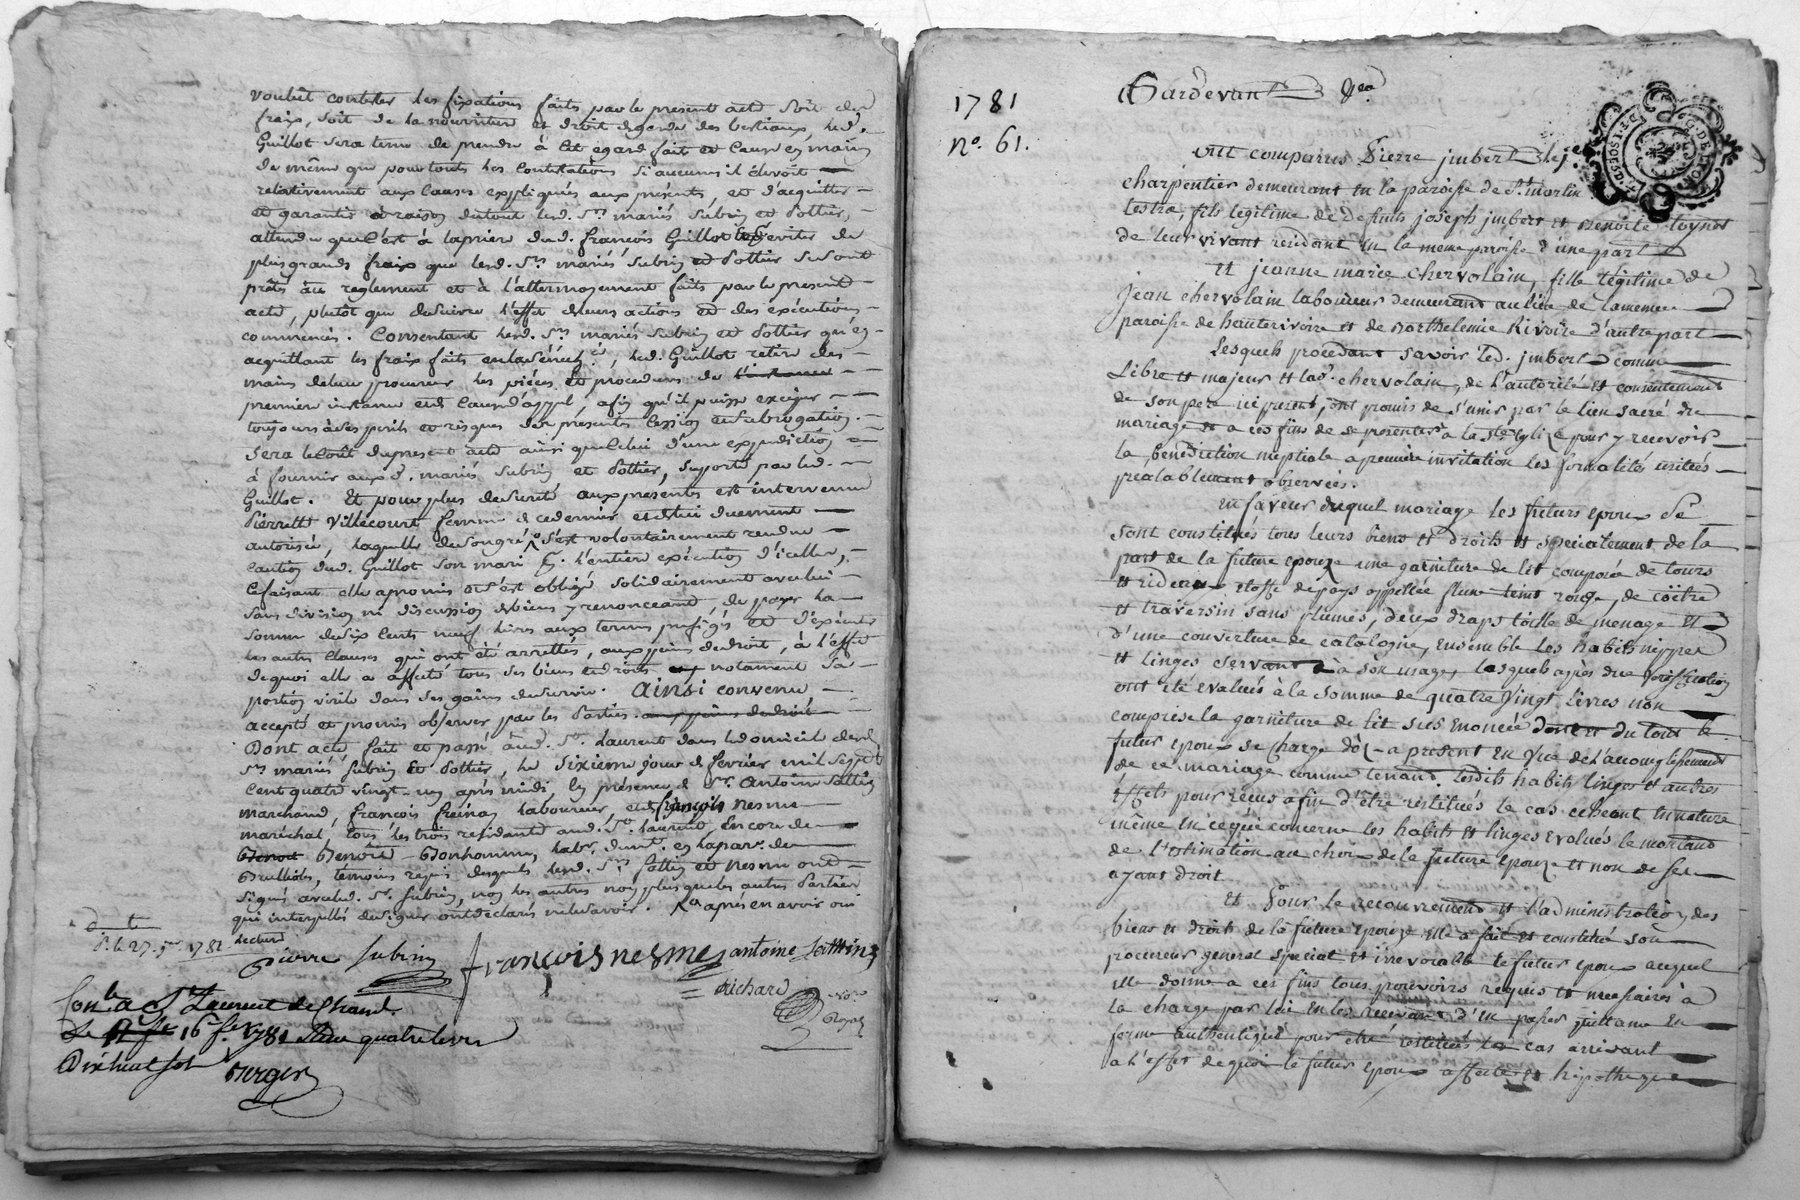 voulut contester les fixations faits par le present acte soit des
frais, soit de la nourriture et droit de garde des bestiaux, led.
Guillot sera tenu de prendre à cet egard fait et cause en main
de même que pour touts les contestations si aucunes il s'elevoit
relativement aux causes expliqués aux présents et d'acquitter
et garantir à raison du tout lesd. Srs mariés Subrin et Pottier,
attendu que c'est à la priere dud. françois Guillot d'eviter de
plus grands frais que lesd. Srs mariés Subrin et Pottier se sont
prêtés au reglement et à l'attermoyement faits par le present
acte, plutôt que de suivre l'effet de leurs actions et des exécutions
commencés. Consentant lesd. Srs mariés Subrin et Pottier qu'en
acquittant les frais faits en la séné, led. Guillot retire des
mains de leur procureur les piéces et procedures de
premiere instance et de cause d'appel, afin qu'il puisse exciper
toujours à ses perils et risques des presentes cession et subrogation.
Sera le coût du present acte ainsi que celui d'une expedition
à fournir auxd. mariés Subrin et Pottier, supporté par led.
Guillot. Et pour plus de sureté aux presentes est intervenue
Pierrette Villecourt femme de ce dernier et de lui duement
autorisée, laquelle de son gré s'est volontairement rendue
caution dud. Guillot son mari p. l'entiere exécution d'icelles,
ce faisant elle a promis et s'est obligé solidairement avec lui
sans division ni discussion de biens y renonceant, de payer la
somme de six cents neuf livres aux termes prefigés et d'exécuter
les autres clauses qui ont été arrettés, aux peines de droit, à l'effet
de quoi elle a affecté tous ses biens et droits et notament sa
portion virile dans ses gains de survie. Ainsi convenu
accepté et promis observer par les Parties. aux peines de droit
Dont acte fait et passé aud. St. Laurent dans le domicile desd.
Srs mariés Subrin et Pottier, le sixieme jour de fevrier mil sept
cent quatre vingt un après midi, en présence de Sr. Antoine
marchand, françois freinay laboureur, et françois nesme
maréchal, tous les trois residants aud. St. laurent, Encore de
Benoit Benoit Bonhomme, labr. demt. en la par. de
Brulliolles, témoins requis desquels lesd. Srs. et nesme ont
signés avec led. Sr. Subrin, non les autres non plus que les autres Parties
qui interpellés de signer ont déclarés ne le savoir. Les après en avoir oui
lecture
d t
27 1781
Pierre Subrin françois nesme antoine
Richard Nore Royal
Con. a St Laurent de Chamd.
Le 16 fer 1781 Reçu quatre livres
Dix huit sols
Burger
1781
no. 61.
Pardevant &ca
ont comparus Pierre jmbert le je
charpentier demeurant en la paroisse de St. martin
lestra, fils legitime de defunts joseph jmbert et Benoite toynot
de leur vivant residant en la meme paroisse d'une part
Et jeanne marie chervolain, fille légitime de
jean chervolain laboureur demeurant au lieu de lamenue
paroisse de hauterivoire et de Barthelemie Rivoire d'autre part
Lesquels procedant savoir led. jmbert comme
Libre et majeur et lad. chervolain, de l'autorité et consentement
de son pere ici present, ont promis de s'unir par le lien sacré du
mariage et a ces fins de se presenter a la Ste Eglize pour y recevoir
la bénédiction nuptiale a premiere invitation les formalités usitées
prealablement observées.
En faveur duquel mariage les futurs epoux se
sont constitués tous leurs biens et droits et specialement de la
part de la future epouze une garniture de lit composée de tours
et rideaux etoffe de pays appellée flune teint rouge, de coitre
et traversin sans plumes, deux draps toille de menage et
d'une couverture de catalogne, ensemble les habits nippes
et linges servant à son usage, lesquels après due verification
ont été evalués à la somme de quatre vingt livres non
comprise la garniture de lit sus enoncée dont et du tout le
futur epoux se charge dès a present en vue de l'accomplissement
de ce mariage comme tenant lesdits habits linges et autres
effets pour reçus afin d'être restitués le cas echeant en nature
même en ce qui concerne les habits et linges evalués le montant
de l'estimation au choix de la future epouze et non de ses
ayant droit
Et Pour le recouvrement et l'administration des
biens et droits de la future epouze elle a fait et constitué son
procureur general special et irrevocable le futur epoux auquel
elle donne a ces fins tous pouvoirs requis et necessaires à
la charge par lui en les recevant d'en passer quittance en
forme authentique pour etre restitués les cas arrivant
a l'effet de quoi le futur epoux affecte et hipotheque
G. DE LYON